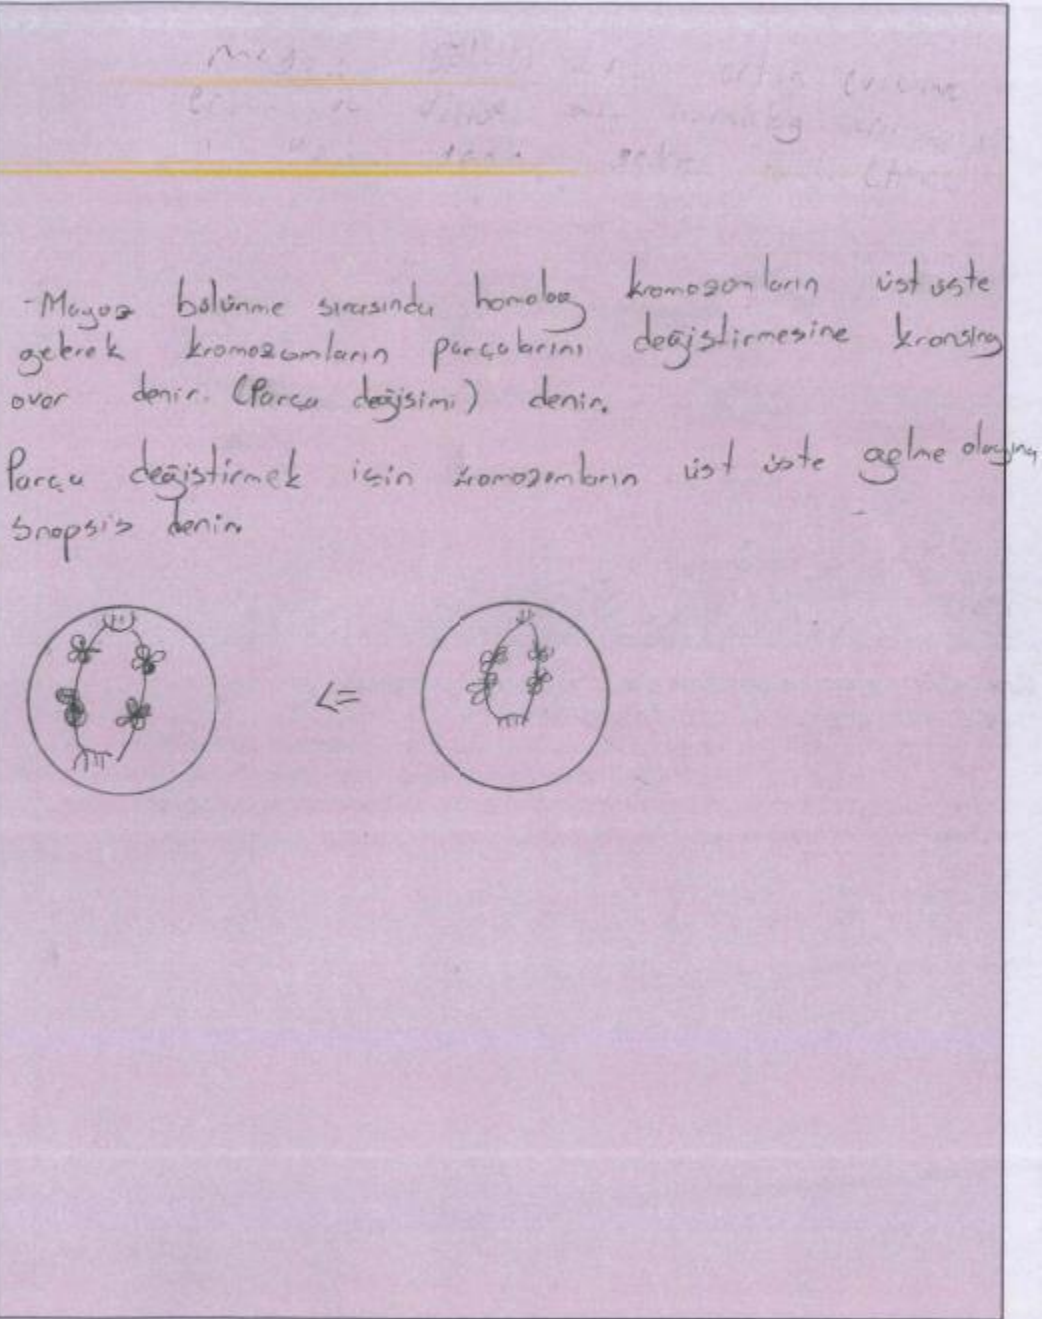 -Mayoz bölünme sırasında homolog kromozomların üst üste
gelerek kromozomların parçalarını değiştirmesine kronsing
over denir. (Parça değişimi) denir.
Parça değiştirmek için kromozomların üst üste gelme olayına
Snopsis denir.
<=